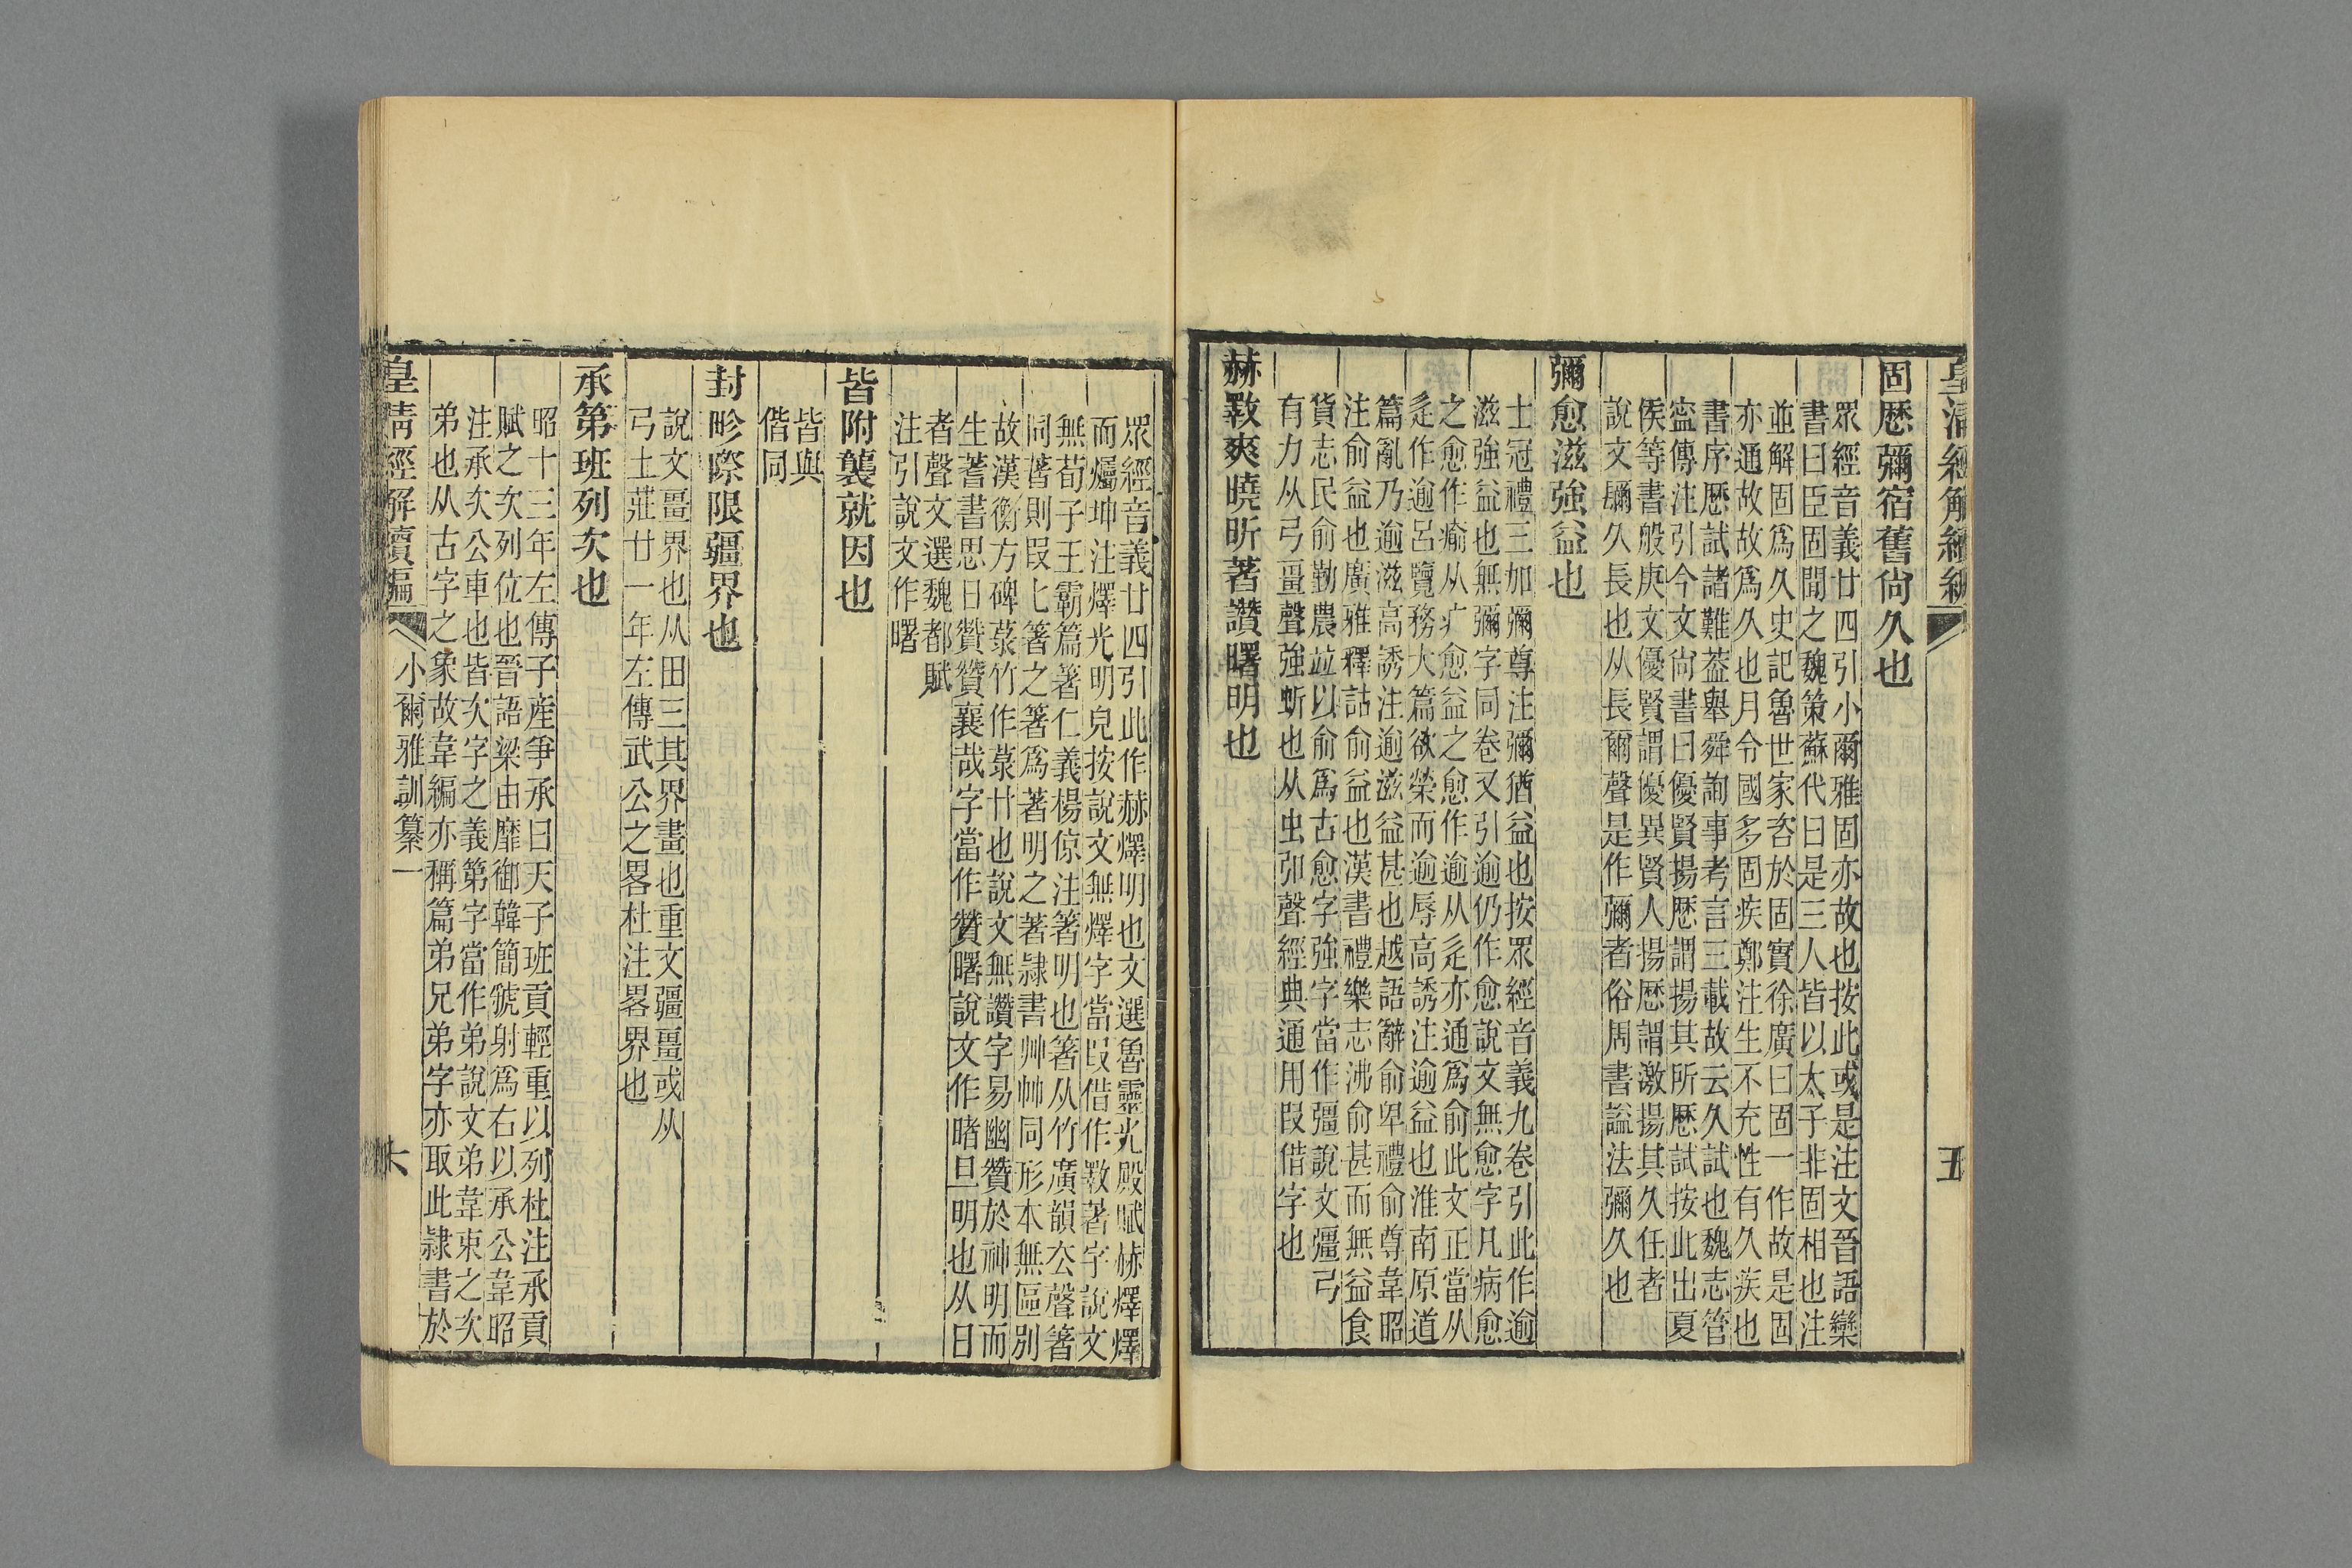 皇清經解續編
五
固歴彌宿舊尙久也
眾經音義廿四引小爾雅固亦故也按此或是注文晉語欒
書曰臣固聞之魏策蘇代曰是三人皆以太子非固相也注
並解固爲久史記魯世家咨於固實徐廣曰固一作故是固
亦通故故爲久也月令國多固疾鄭注生不充性有久疾也
書序歴試諸難葢舉舜詢事考言三載故云久試也魏志管
寍傳注引今文尙書曰優賢揚歴謂揚其所歴試按此出夏
侯等書般庚文優賢謂優異賢人揚歴謂激揚其久任者
說文镾久長也从長爾聲是作彌者俗周書謚法彌久也
彌愈滋強益也
士冠禮三加彌尊注彌猶益也按眾經音義九卷引此作逾
滋強益也無彌字同卷又引逾仍作愈說文無愈字凡病愈
之愈作瘉从疒愈益之愈作逾从辵亦通爲俞此文正當从
辵作逾呂覽務大篇欲榮而逾辱高誘注逾益也淮南原道
篇亂乃逾滋高誘注逾滋益甚也越語辭俞卑禮俞尊韋昭
注俞益也廣雅釋詁俞益也漢書禮樂志沸俞甚而無益食
貨志民俞勤農竝以俞爲古愈字強字當作彊說文彊弓
有力从弓畺聲強蚚也从虫弘聲經典通用叚借字也
赫斁爽曉昕著讚曙明也
眾經音義廿四引此作赫燡明也文選魯靈光殿賦赫燡燡
而爥坤注燡光明皃按說文無燡字當叚借作斁著字說文
無荀子王霸篇箸仁義楊倞注箸明也箸从竹廣韻厺聲箸
同蓍則叚匕箸之箸爲著明之著隷書艸帥同形本無區別
故漢衡方碑菉竹作菉廿也說文無讚字易幽贊於神明而
生蓍書思曰贊贊襄哉字當作贊曙說文作睹旦明也从日
者聲文選魏都賦
注引說文作曙
皆附襲就因也
皆與
偕同
封畛際限疆界也
說文畺界也从田三其界畫也重文疆畺或从
弓土莊廿一年左傳武公之畧杜注畧界也
承第班列次也
昭十三年左傳子產爭承曰天子班貢輕重以列杜注承貢
賦之次列位也晉語梁由靡御韓簡虢射爲右以承公韋昭
注承次公車也皆次字之義第字當作弟說文弟韋束之次
弟也从古字之象故韋編亦稱篇弟兄弟字亦取此隷書於
皇清經解續編
小爾雅訓纂一
六